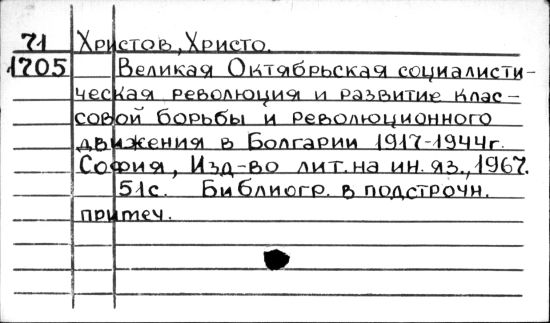 71 Христов, Христо.
1705 Великая Октябрьская социалисти-
ческая революция и развитие клас-
совой борьбы и революционного
движения в Болгарии 1917-1944г.
София, Изд-во лит. на ин. яз., 1967.
51с. Библиогр. в подстрочн.
примеч.